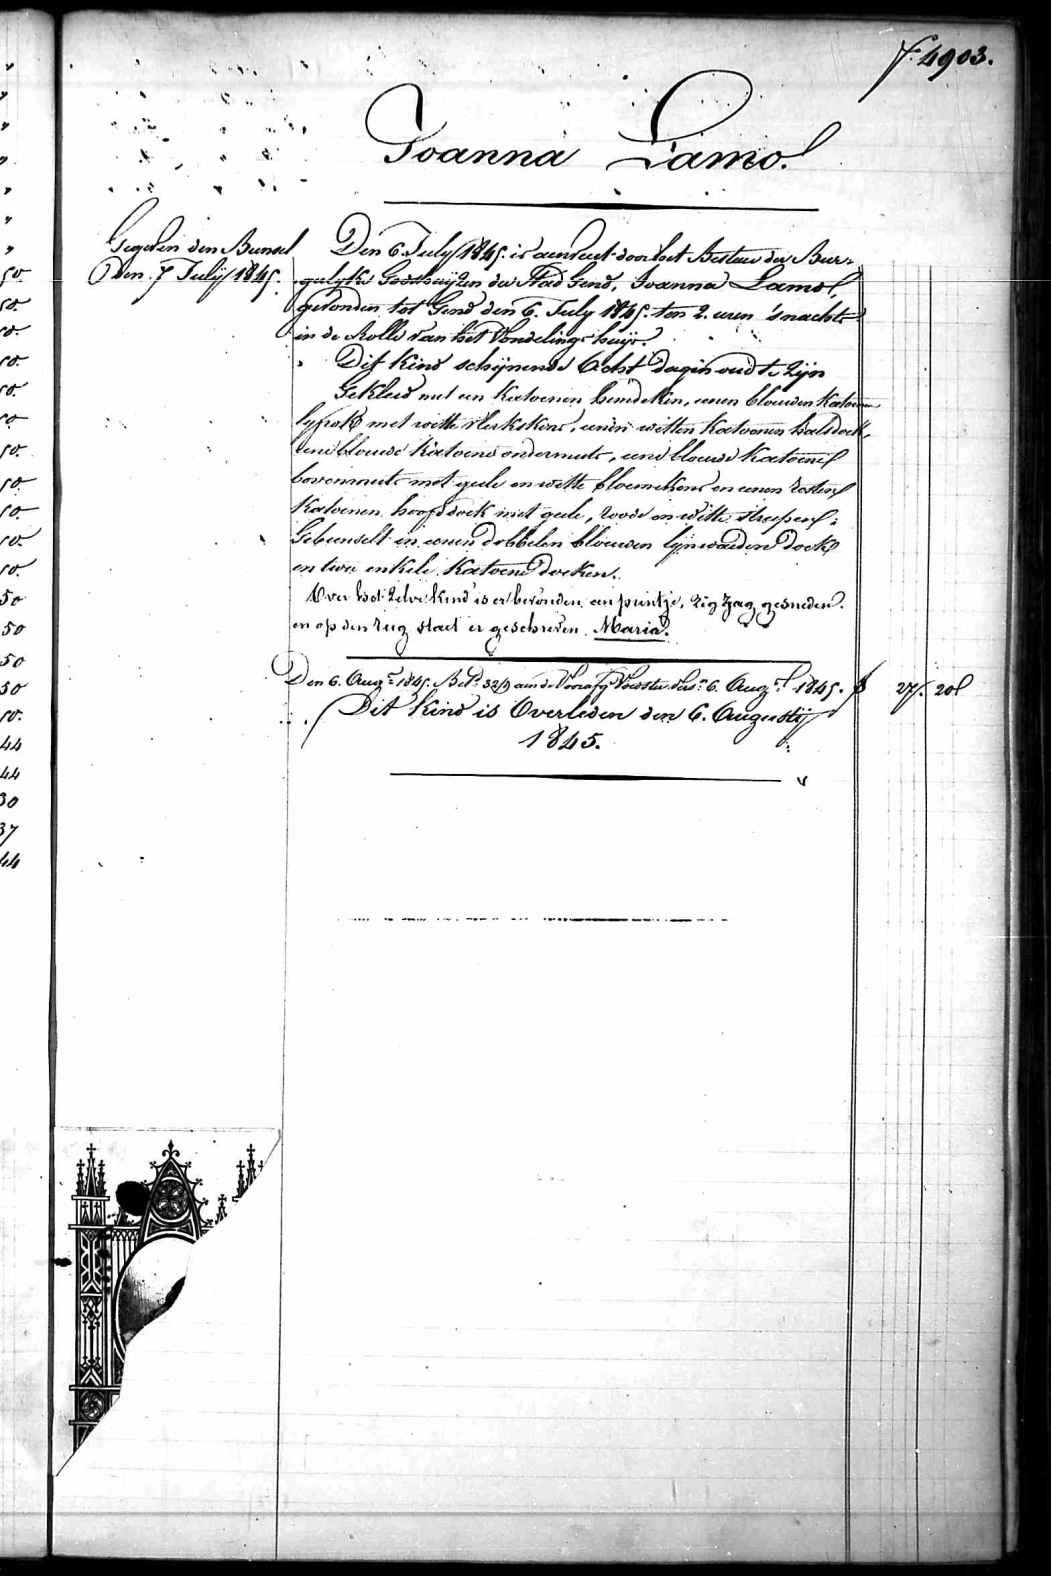 f. 4903.
Joanna Lamol.
Gegeven den Bunsel
Den 7 Julij 1845.
Den 6. July 1845. is aenveert door het Bestuer der Bur-
gelyke Godshuijzen der Stad Gend, Joanna Lamol,
gevonden tot Gend den 6. July 1845. ten 2. uren 's nachts
in de Rolle van het Vondelings huijs.
Dit Kind schijnende Acht dagen oud te Zijn
Gekleed met een Katoenen hemdeken, eenen blouwen Katoenen
lyfrok met witte vlerkskens, eenen witten Katoenen halsdoek,
eene blouwe Katoene ondermuts, eene blouwe Katoene
bovenmuts met geele en witte bloemekens en eenen
Katoenen hoofddoek met geele, roode en witte streepen;
Gebunselt in eenen dobbelen blouwen lijnwaeden Doek
en twee enkele Katoene Doeken.
Over het zelve kind is er bevonden een printje, zig zag gesneden.
en op den rug staet er geschreven Maria.
Den 6. Aug. 1845. Bet. 32/9 aen de Voedster 6. Aug. 1845. f 27. 20
Dit Kind is Overleden den 6. Augustij
1845.
50.
50.
50.
50.
50.
50.
50.
50.
50.
50.
50.
50
50
50
50
50.
44
44
30
37
44